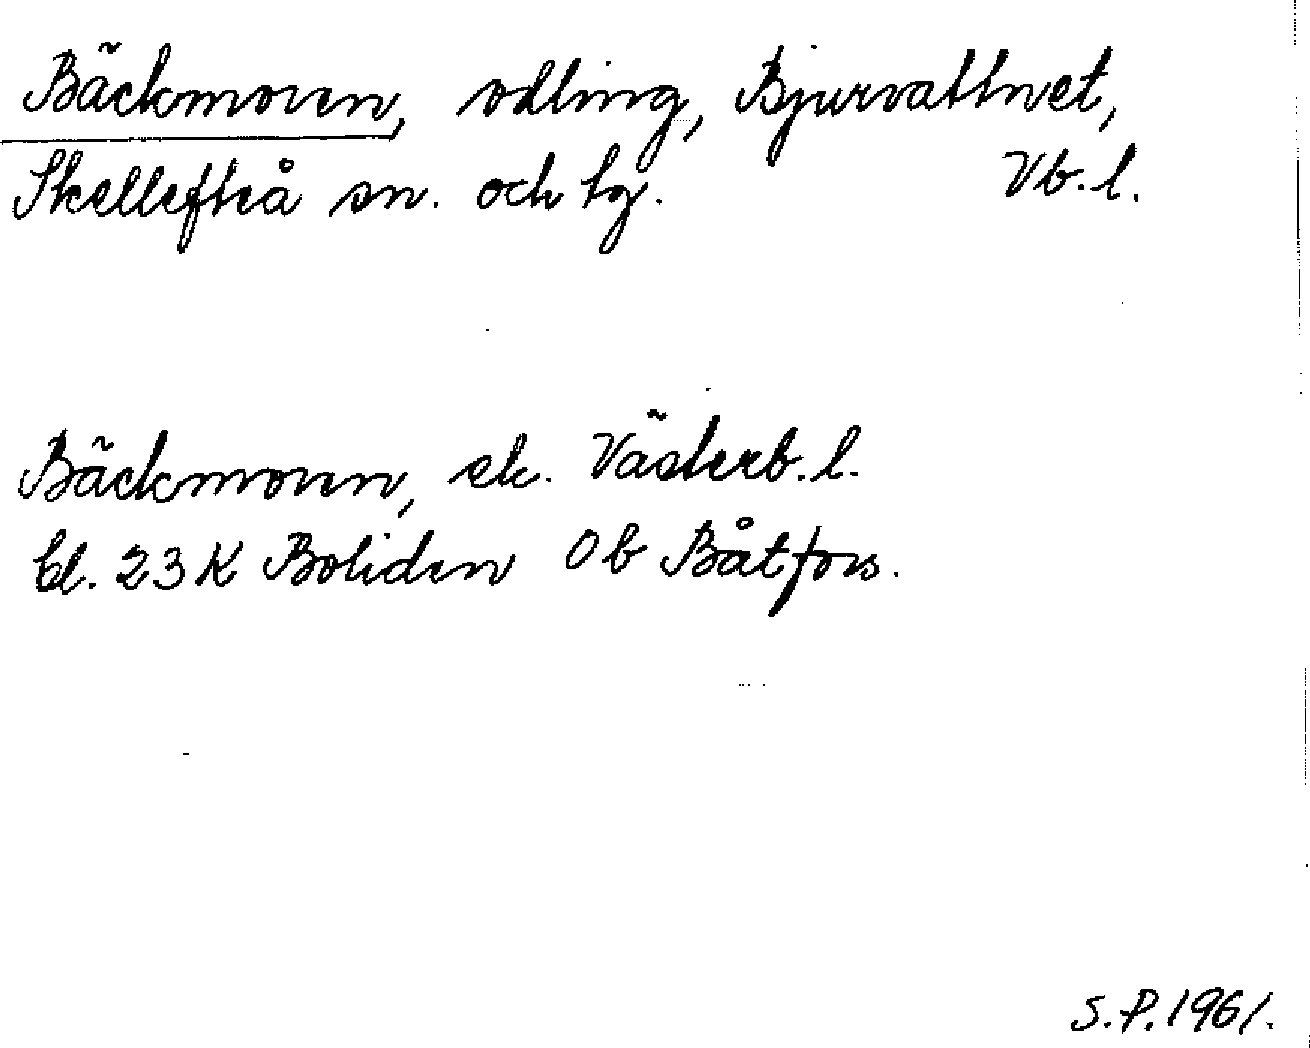 Bäckmoren, odling, Bjurvattnet,
Skellefteå sn. och tg. Vb. l.
Bäckmoren, ek. Västerb. l.
bl. 23 K Boliden 0 b Båtfors.
S.P. 1961.